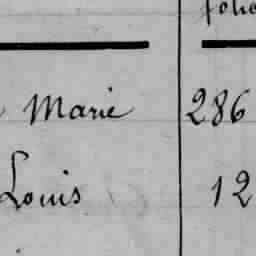 folio
Marie 286
Louis 12